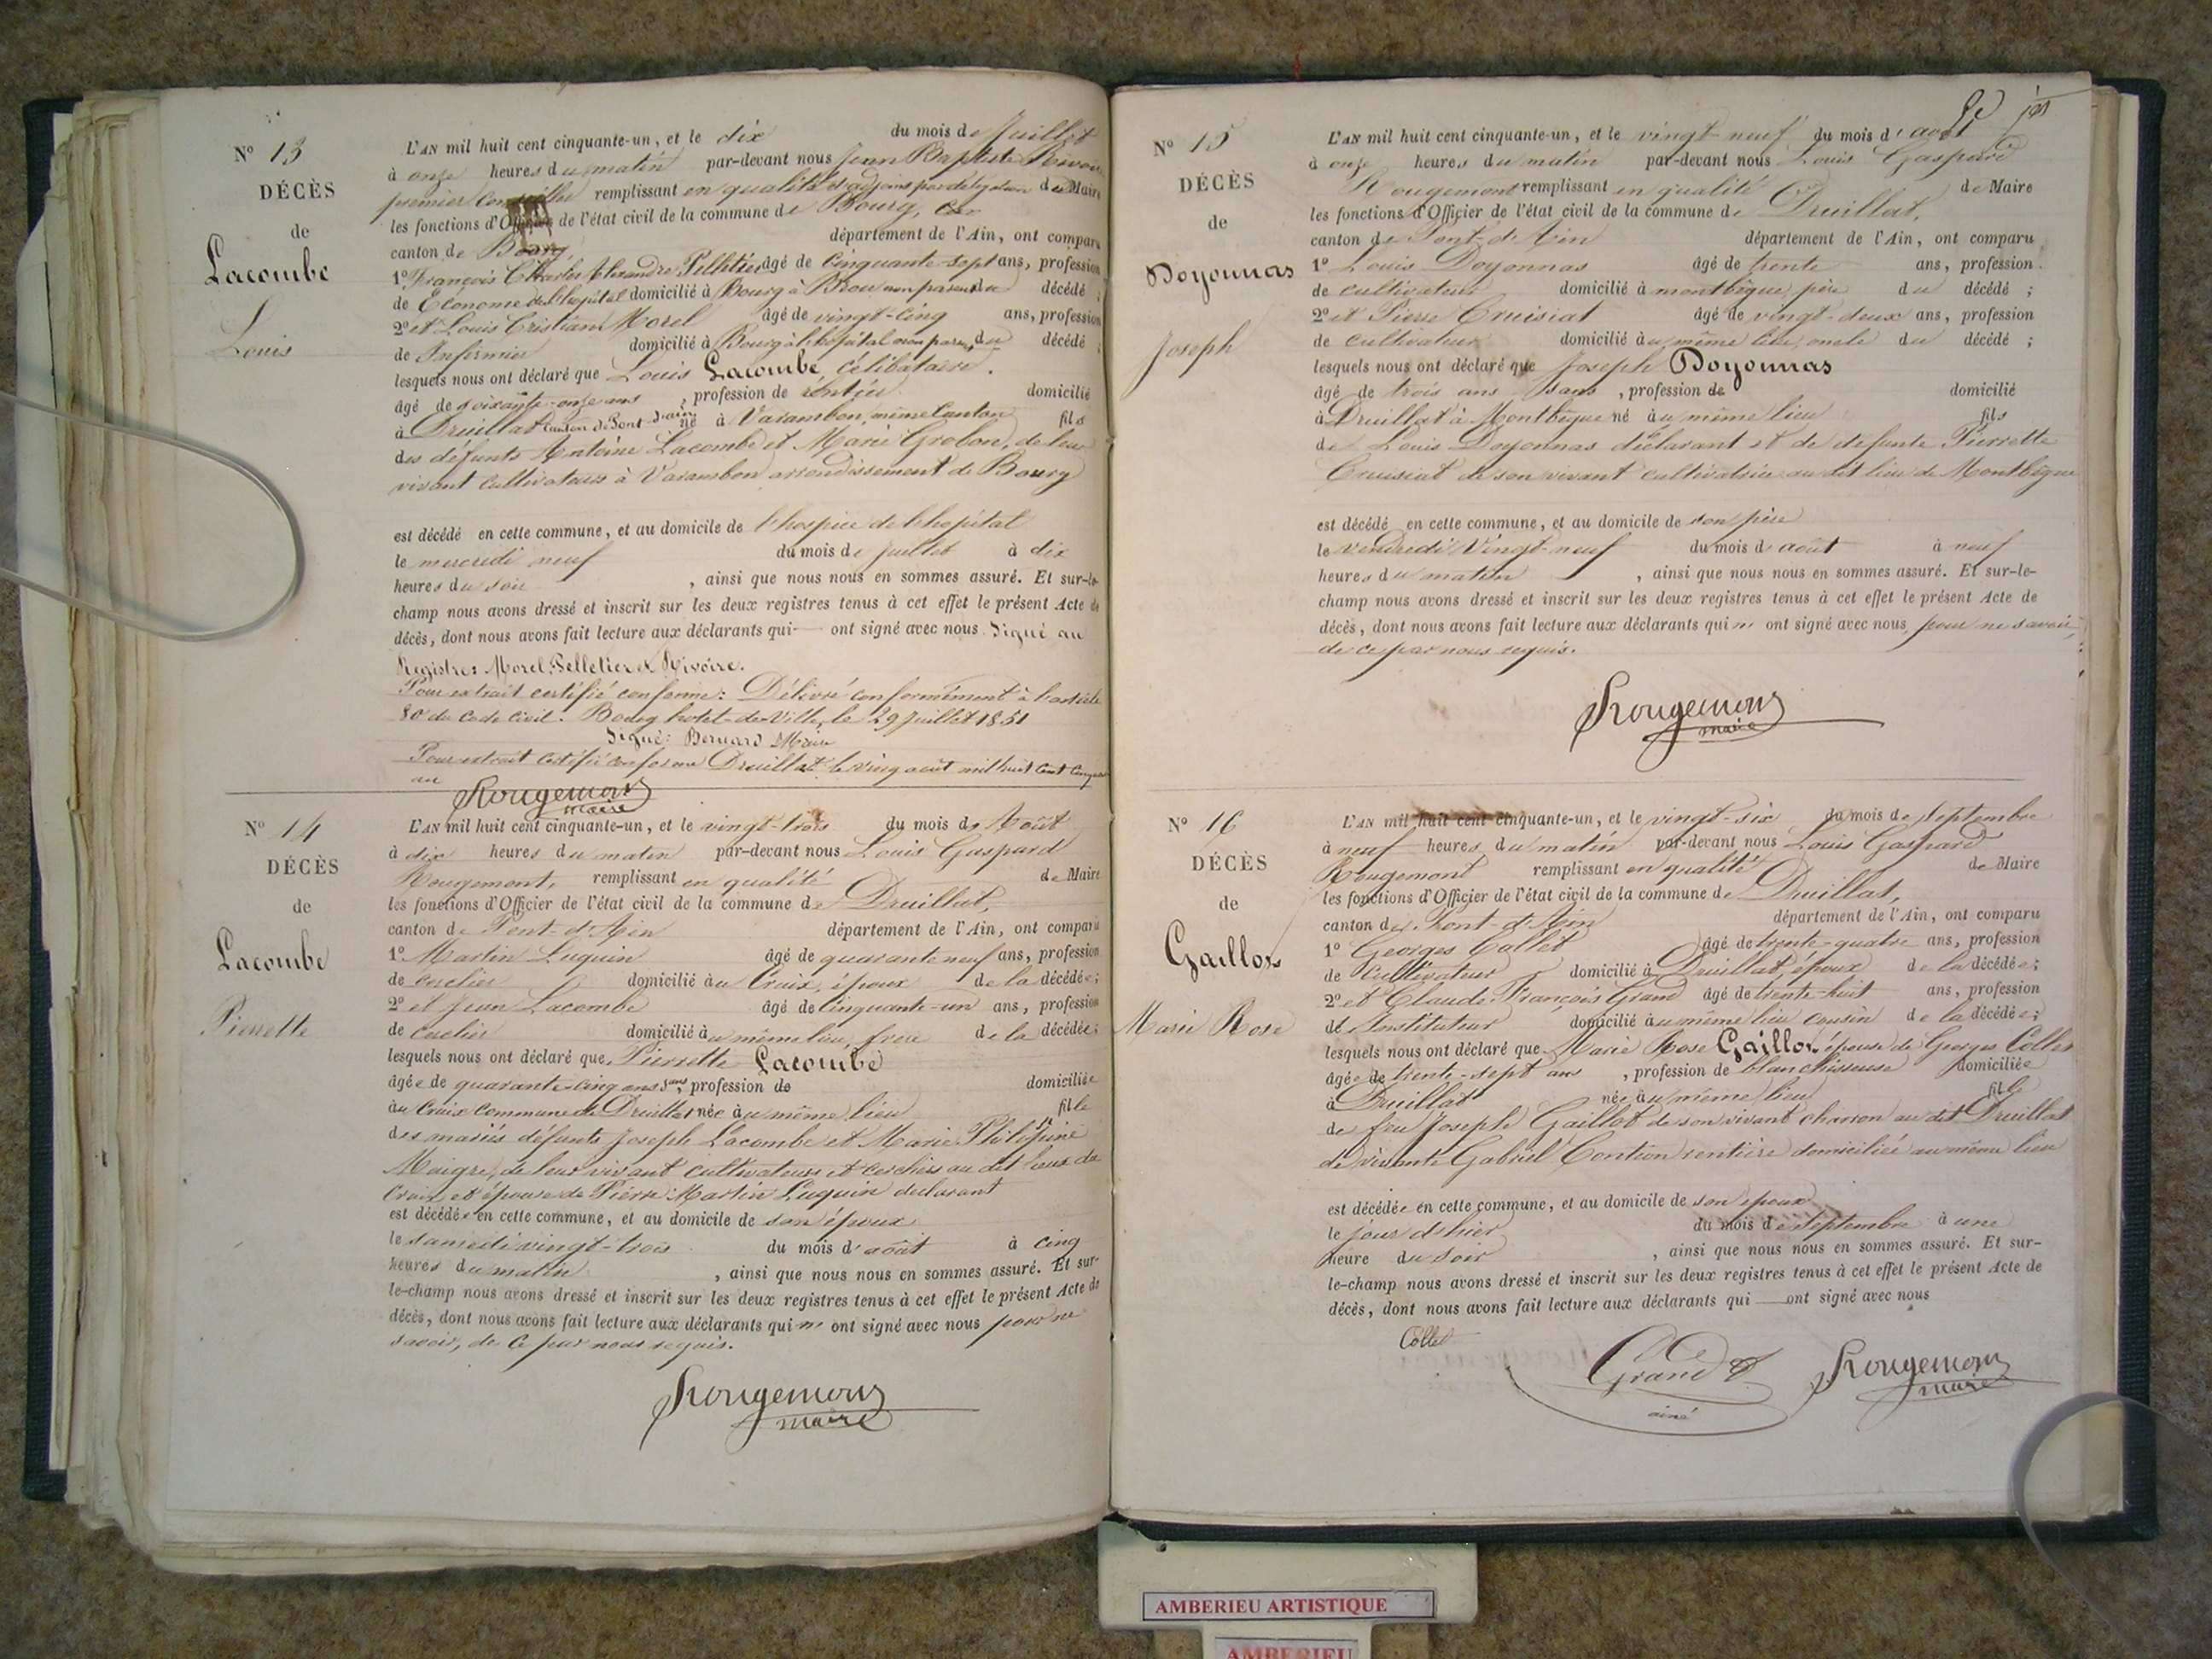 N° 13
DÉCÈS
de
Lacombe
Louis
L'AN mil huit cent cinquante-un, et le dix du mois de Juillet
à onze heures du matin par-devant nous Jean Baptiste Rivoire
premier conseiller remplissant en qualité d'adjoint par délégation de Maire
les fonctions d'Officier de l'état civil de la commune de Bourg,
canton de Bourg, département de l'Ain, ont comparu
1° François Charles Alexandre Pelletier âgé de cinquante-sept ans, profession
de Econome de l'hopital domicilié à Bourg à Brou non parent du décédé ;
2° et Louis Cristian Morel âgé de vingt-cinq ans, profession
de Infirmier domicilié à Bourg à l'hopital non parent du décédé ;
lesquels nous ont déclaré que Louis Lacombe, célibataire.
âgé de soixante-onze ans, profession de rentier domicilié
à Druillat canton de Pont d'ain né à Varambon, même canton fils
des défunts Antoine Lacombe et Marie Grobon, de leur
vivant cultivateurs à Varambon arrondissement de Bourg
est décédé en cette commune, et au domicile de l'hospice de l'hopital
le mercredi neuf du mois de juillet à dix
heures du soir, ainsi que nous nous en sommes assuré. Et sur-le-
champ nous avons dressé et inscrit sur les deux registres tenus à cet effet le présent Acte de
décès, dont nous avons fait lecture aux déclarants qui — ont signé avec nous. Signé au
Registre: Morel, Pelletier & Rivoire.
Pour extrait certifié conforme: Délivré conformément à l'article
80 du code civil. Bourg hotel-de-Ville, le 29 Juillet 1851
Signé: Bernard Maire
Pour extrait certifié conforme Druillat le vingt août mil huit cent cinquante
un
Rougemont
maire
N° 14
DÉCÈS
de
Lacombe
Pierrette
L'AN mil huit cent cinquante-un, et le vingt-trois du mois de Août
à dix heures du matin par-devant nous Louis Gaspard
Rougemont, remplissant en qualité de Maire
les fonctions d'Officier de l'état civil de la commune de Druillat,
canton de Pont-d'Ain département de l'Ain, ont comparu
1° Martin Luquin âgé de quarante neuf ans, profession
de cerclier domicilié au Craix, époux de la décédée ;
2° et Jean Lacombe âgé de cinquante-un ans, profession
de cerclier domicilié au même lieu, frère de la décédée ;
lesquels nous ont déclaré que Pierrette Lacombe
âgée de quarante-cinq ans sans profession de domiciliée
au Craix commune de Druillat née au même lieu fille
des mariés défunts Joseph Lacombe et Marie Philipine
Maigre, de leur vivant cultivateurs et cercliers au dit lieu de
Craix et épouse de Pierre Martin Luquin déclarant
est décédée en cette commune, et au domicile de son époux
le samedi vingt-trois du mois d'août à cinq
heures du matin, ainsi que nous nous en sommes assuré. Et sur-
le-champ nous avons dressé et inscrit sur les deux registres tenus à cet effet le présent Acte de
décès, dont nous avons fait lecture aux déclarants qui n' ont signé avec nous pour ne
savoir, de ce par nous requis.
Rougemont
maire
N° 15
DÉCÈS
de
Doyonnas
Joseph
L'AN mil huit cent cinquante-un, et le vingt-neuf du mois d'août
à onze heures du matin par-devant nous Louis Gaspard
Rougemont remplissant en qualité de Maire
les fonctions d'Officier de l'état civil de la commune de Druillat,
canton de Pont-d'Ain département de l'Ain, ont comparu
1° Louis Doyonnas âgé de trente ans, profession
de cultivateur domicilié à montbègue, père du décédé ;
2° et Pierre Cruisiat âgé de vingt-deux ans, profession
de cultivateur domicilié au même lieu, oncle du décédé ;
lesquels nous ont déclaré que Joseph Doyonnas
âgé de trois ans sans, profession de domicilié
à Druillat à Montbègue né au même lieu fils
de Louis Doyonnas déclarant et de défunte Pierrette
Cruisiat de son vivant cultivatrice au dit lieu de Montbègue
est décédé en cette commune, et au domicile de son père
le vendredi vingt-neuf du mois d'août à neuf
heures du matin, ainsi que nous nous en sommes assuré. Et sur-le-
champ nous avons dressé et inscrit sur les deux registres tenus à cet effet le présent Acte de
décès, dont nous avons fait lecture aux déclarants qui n' ont signé avec nous, pour ne savoir,
de ce par nous requis.
Rougemont
maire
N° 16
DÉCÈS
de
Gaillot
Marie Rose
L'AN mil huit cent cinquante-un, et le vingt-six du mois de septembre
à neuf heures du matin par-devant nous Louis Gaspard
Rougemont remplissant en qualité de Maire
les fonctions d'Officier de l'état civil de la commune de Druillat,
canton de Pont-d'Ain département de l'Ain, ont comparu
1° Georges Collet âgé de trente-quatre ans, profession
de cultivateur domicilié à Druillat, époux de la décédée ;
2° et Claude François Grand âgé de trente-huit ans, profession
de Instituteur domicilié au même lieu cousin de la décédée ;
lesquels nous ont déclaré que Marie Rose Gaillot, épouse de Georges Collet
âgée de trente-sept ans, profession de blanchisseuse domiciliée
à Druillat née au même lieu fille
de feu Joseph Gaillot de son vivant charron au dit Druillat
de vivante Gabriel Contion rentière domiciliée au même lieu
est décédée en cette commune, et au domicile de son époux
le jour d'hier du mois de septembre à une
heure du soir, ainsi que nous nous en sommes assuré. Et sur-
le-champ nous avons dressé et inscrit sur les deux registres tenus à cet effet le présent Acte de
décès, dont nous avons fait lecture aux déclarants qui — ont signé avec nous
Collet
Grand
ainé
Rougemont
maire
AMBERIEU ARTISTIQUE
AMBERIEU